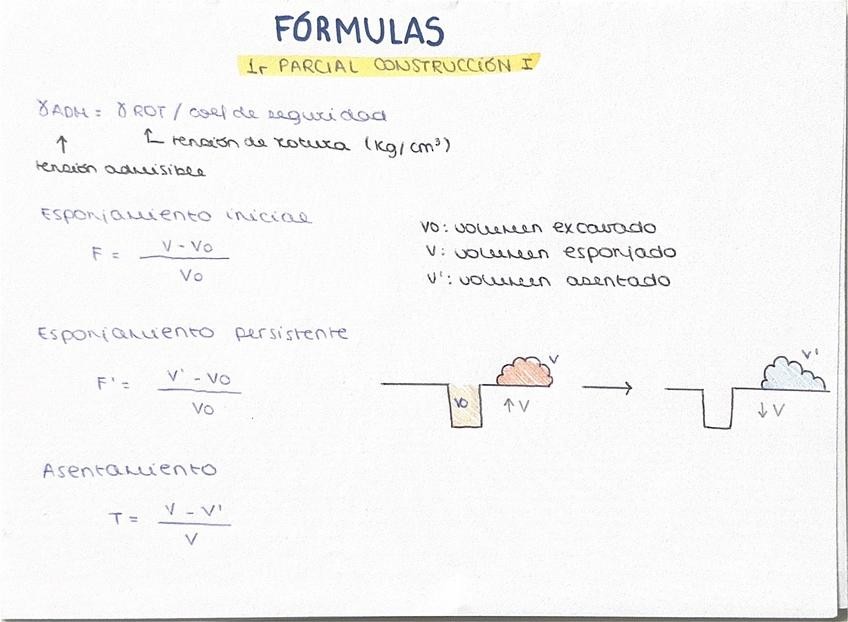 FÓRMULAS
1r PARCIAL CONSTRUCCIÓN I
γADM = γROT / coef de seguridad
↑ tensión admisible
tensión de rotura (kg/cm³)
Esponjamiento inicial
F = (V - Vo) / Vo
Vo: volumen excavado
V: volumen esponjado
V': volumen asentado
Esponjamiento persistente
F' = (V' - Vo) / Vo
Vo
V
↑V
→
V'
↓V
Asentamiento
T = (V - V') / V